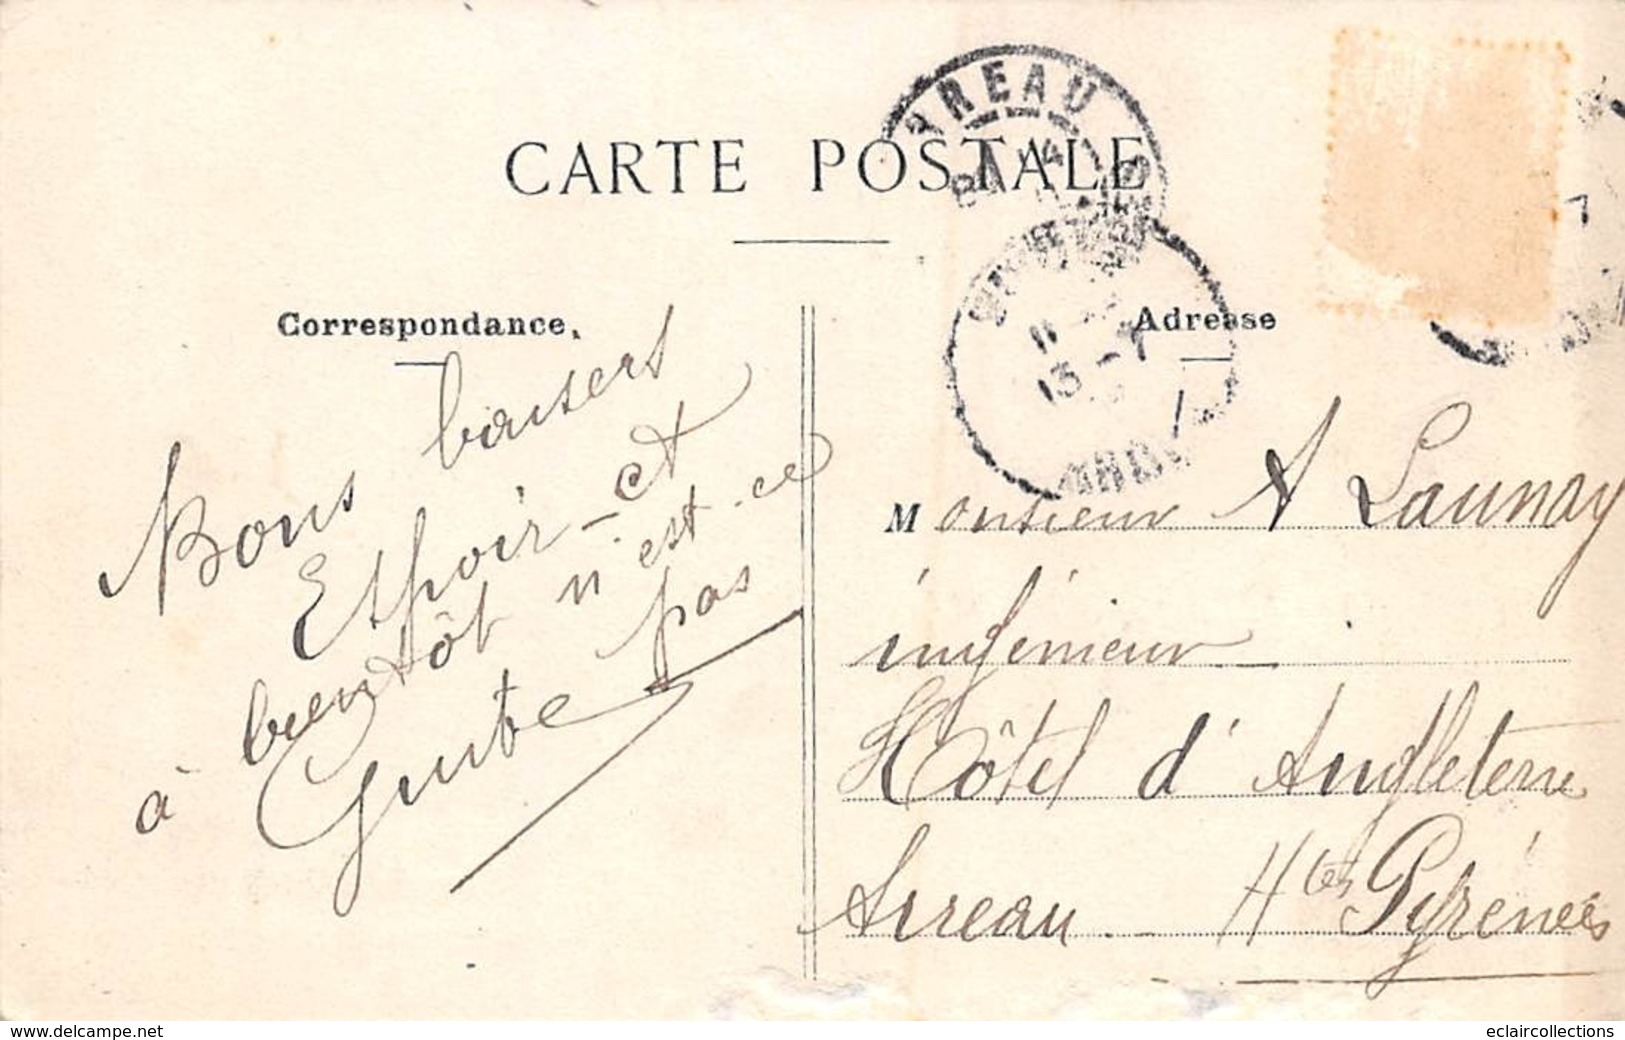 CARTE POSTALE
ARREAU
Correspondance.
Adresse
Bons baisers
Espoir - et
à bientôt n'est-ce
pas
Monsieur A Launay
ingénieur
Hôtel d'Angleterre
Arreau. Htes Pyrénées
www.delcampe.net
eclaircollections